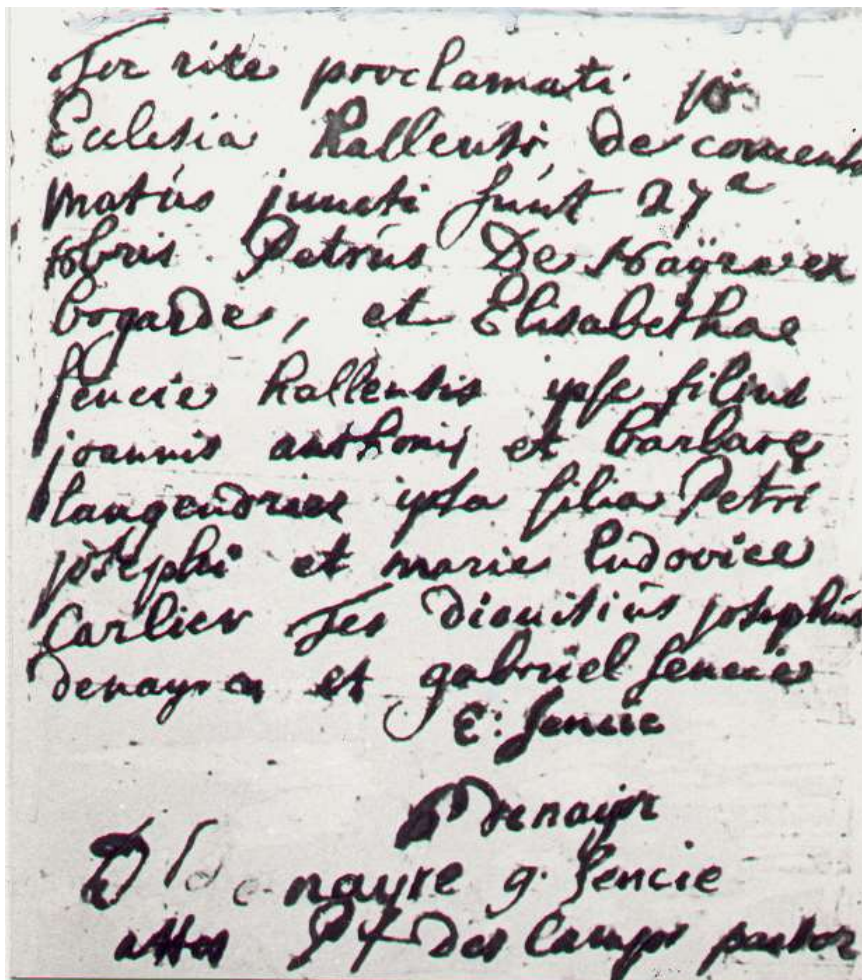 Ter rite proclamati
Ecclesia hallensi de consensu
matris juncti sunt 27a
Petrus De Naÿre ex
bogarde, et Elisabethae
sencie hallensis ipse filius
joannis anthonij et barbarę
langendries ipsa filia Petri
josephi et marie ludovice
Carlier Tes dionitius josephus
denayre et gabriel sencie
E: sencie
P denayr
D denayre g. sencie
attes des Camps pastor